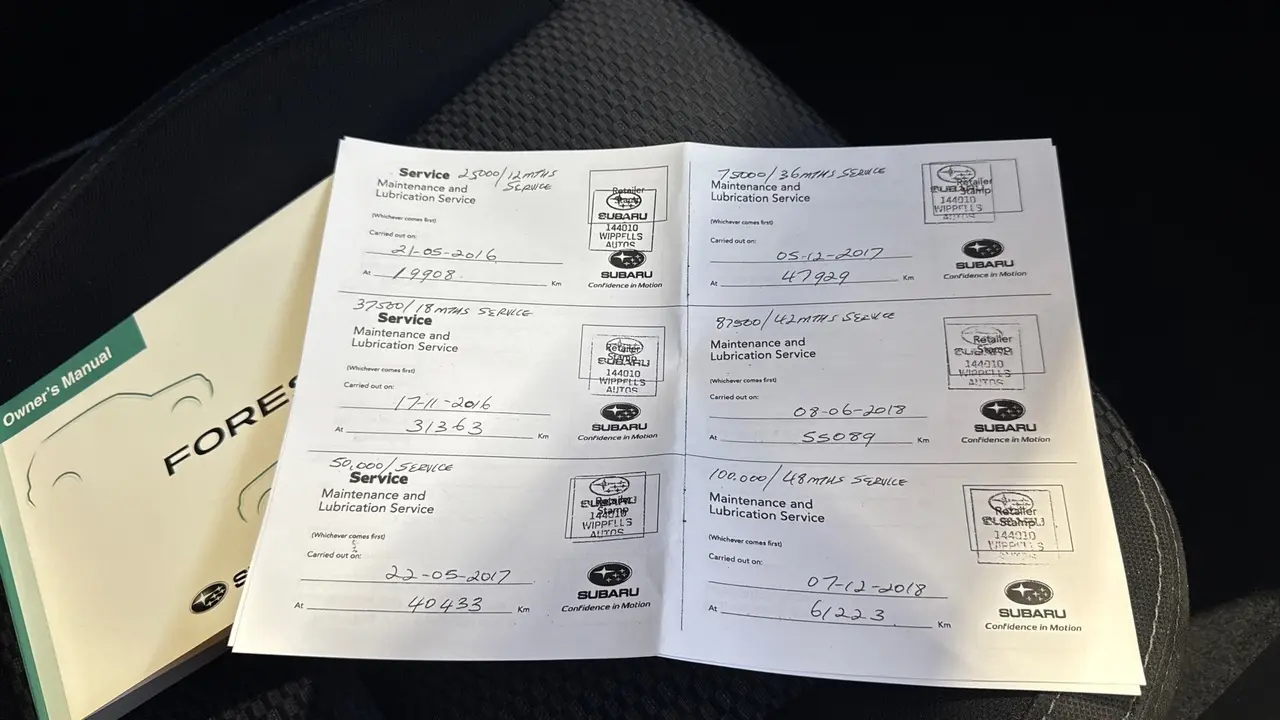 Owner's Manual
Service 25000/12MTHS
Maintenance and SERVICE
Lubrication Service
(Whichever comes first)
Carried out on:
21-05-2016
At 19908 Km
Retailer
Stamp
SUBARU
144010
WIPPELLS
AUTOS
SUBARU
Confidence in Motion
37500/18MTHS SERVICE
Service
Maintenance and
Lubrication Service
(Whichever comes first)
Carried out on:
17-11-2016
At 31363 Km
Retailer
Stamp
SUBARU
144010
WIPPELLS
AUTOS
SUBARU
Confidence in Motion
50,000/SERVICE
Service
Maintenance and
Lubrication Service
(Whichever comes first)
Carried out on:
22-05-2017
At 40433 Km
Retailer
Stamp
SUBARU
144010
WIPPELLS
AUTOS
SUBARU
Confidence in Motion
75000/36MTHS SERVICE
Maintenance and
Lubrication Service
(Whichever comes first)
Carried out on:
05-12-2017
At 47929 Km
Retailer
Stamp
SUBARU
144010
WIPPELLS
AUTOS
SUBARU
Confidence in Motion
87500/42MTHS SERVICE
Maintenance and
Lubrication Service
(Whichever comes first)
Carried out on:
08-06-2018
At 55089 Km
Retailer
Stamp
SUBARU
144010
WIPPELLS
AUTOS
SUBARU
Confidence in Motion
100.000/48MTHS SERVICE
Maintenance and
Lubrication Service
(Whichever comes first)
Carried out on:
07-12-2018
At 61223 Km
Retailer
Stamp
SUBARU
144010
WIPPELLS
SUBARU
Confidence in Motion